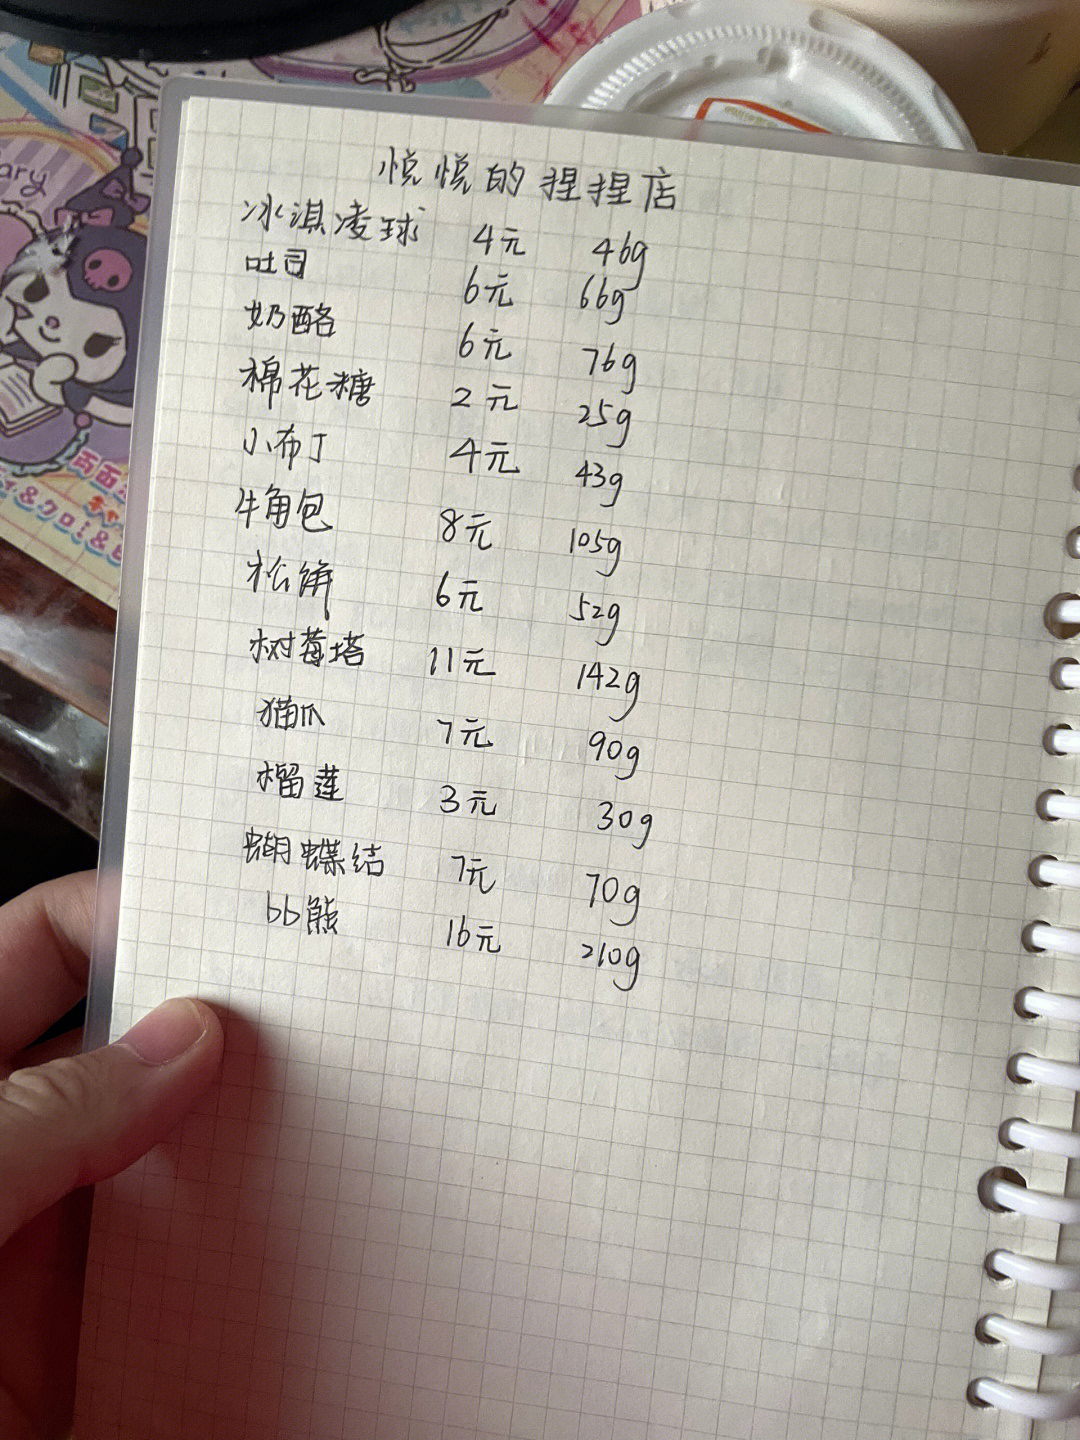 悦悦的捏捏店
冰淇凌球 4元 46g
吐司 6元 66g
奶酪 6元 76g
棉花糖 2元 25g
小布丁 4元 43g
牛角包 8元 105g
松饼 6元 52g
树莓塔 11元 142g
猫爪 7元 90g
榴莲 3元 30g
蝴蝶结 7元 70g
bb熊 16元 210g